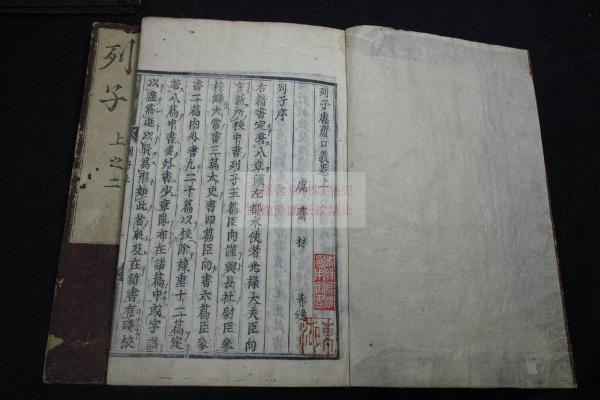 列子鬳齋口義卷上
鬳齋林 希逸
列子序
右新書定著八章護左都水使者光祿大夫臣向
言所校中書列子五篇臣向謹與長社尉臣參
校讎太常書三篇太史書四篇臣向書六篇臣參
書二篇內外書凡二十篇以校除複重十二篇定
著八篇中書多外書少章亂布在諸篇中或字誤
以盡為進以賢為形如此者衆及在新書有棧校
列子
上之二